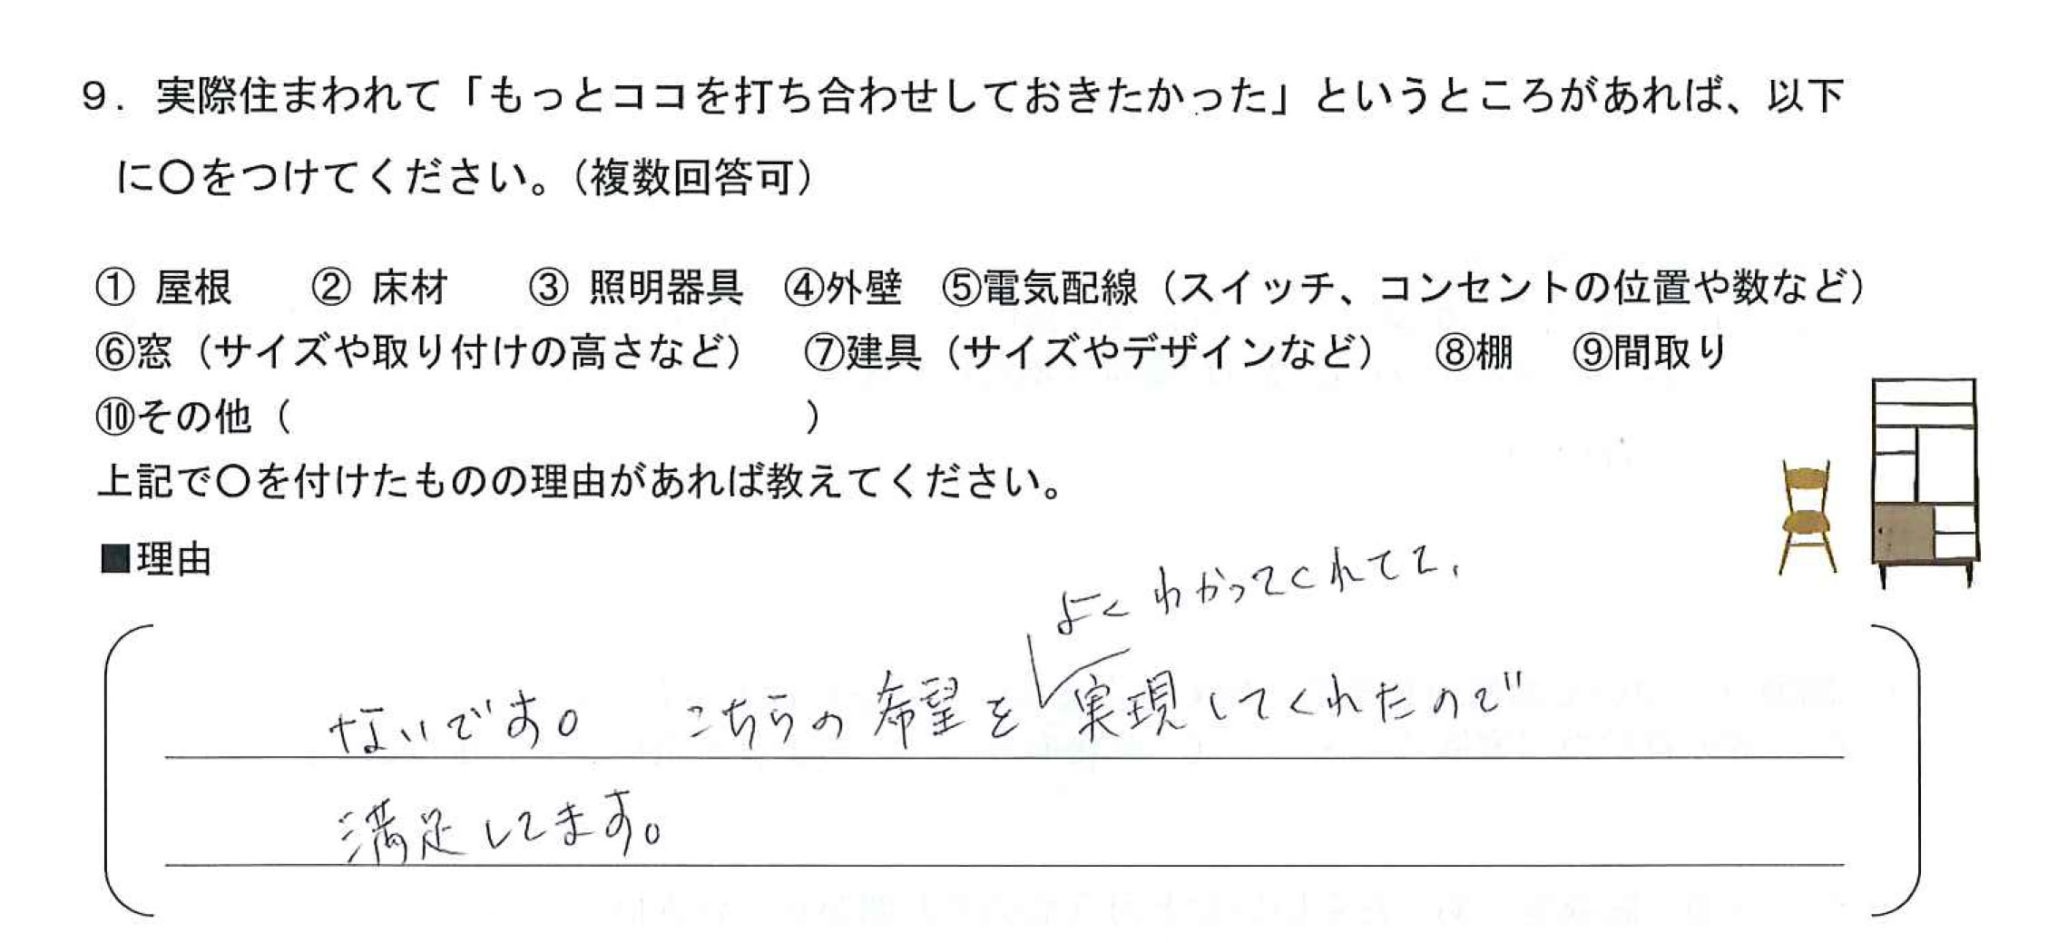 9．実際住まわれて「もっとココを打ち合わせしておきたかった」というところがあれば、以下
に〇をつけてください。（複数回答可）
① 屋根　② 床材　③ 照明器具　④外壁　⑤電気配線（スイッチ、コンセントの位置や数など）
⑥窓（サイズや取り付けの高さなど）　⑦建具（サイズやデザインなど）　⑧棚　⑨間取り
⑩その他（　　　　　　　　　　　　　）
上記で〇を付けたものの理由があれば教えてください。
■理由
よくわかってくれてて、
ないです。　こちらの希望を実現してくれたので
満足してます。